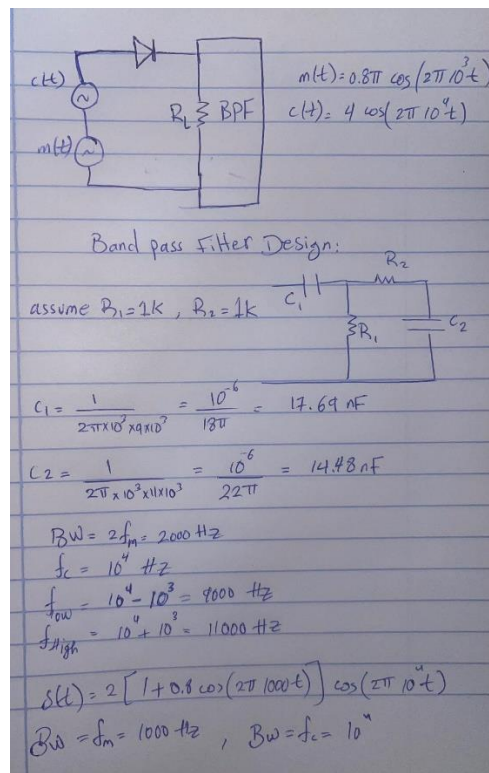 c(t)
m(t)
R_L
BPF
m(t) = 0.8π cos(2π 10³t)
c(t) = 4 cos(2π 10⁴t)
Band pass Filter Design:
assume R₁ = 1k , R₂ = 1k
C₁
R₂
R₁
C₂
C₁ = 1 / (2π×10³×9×10³) = 10⁻⁶ / 18π = 17.69 nF
C2 = 1 / (2π×10³×11×10³) = 10⁻⁶ / 22π = 14.48 nF
BW = 2fₘ = 2000 Hz
f_c = 10⁴ Hz
f_low = 10⁴ - 10³ = 9000 Hz
f_High = 10⁴ + 10³ = 11000 Hz
S(t) = 2 [1 + 0.8 cos(2π 1000t)] cos(2π 10⁴t)
BW = fₘ = 1000 Hz , BW = f_c = 10⁴